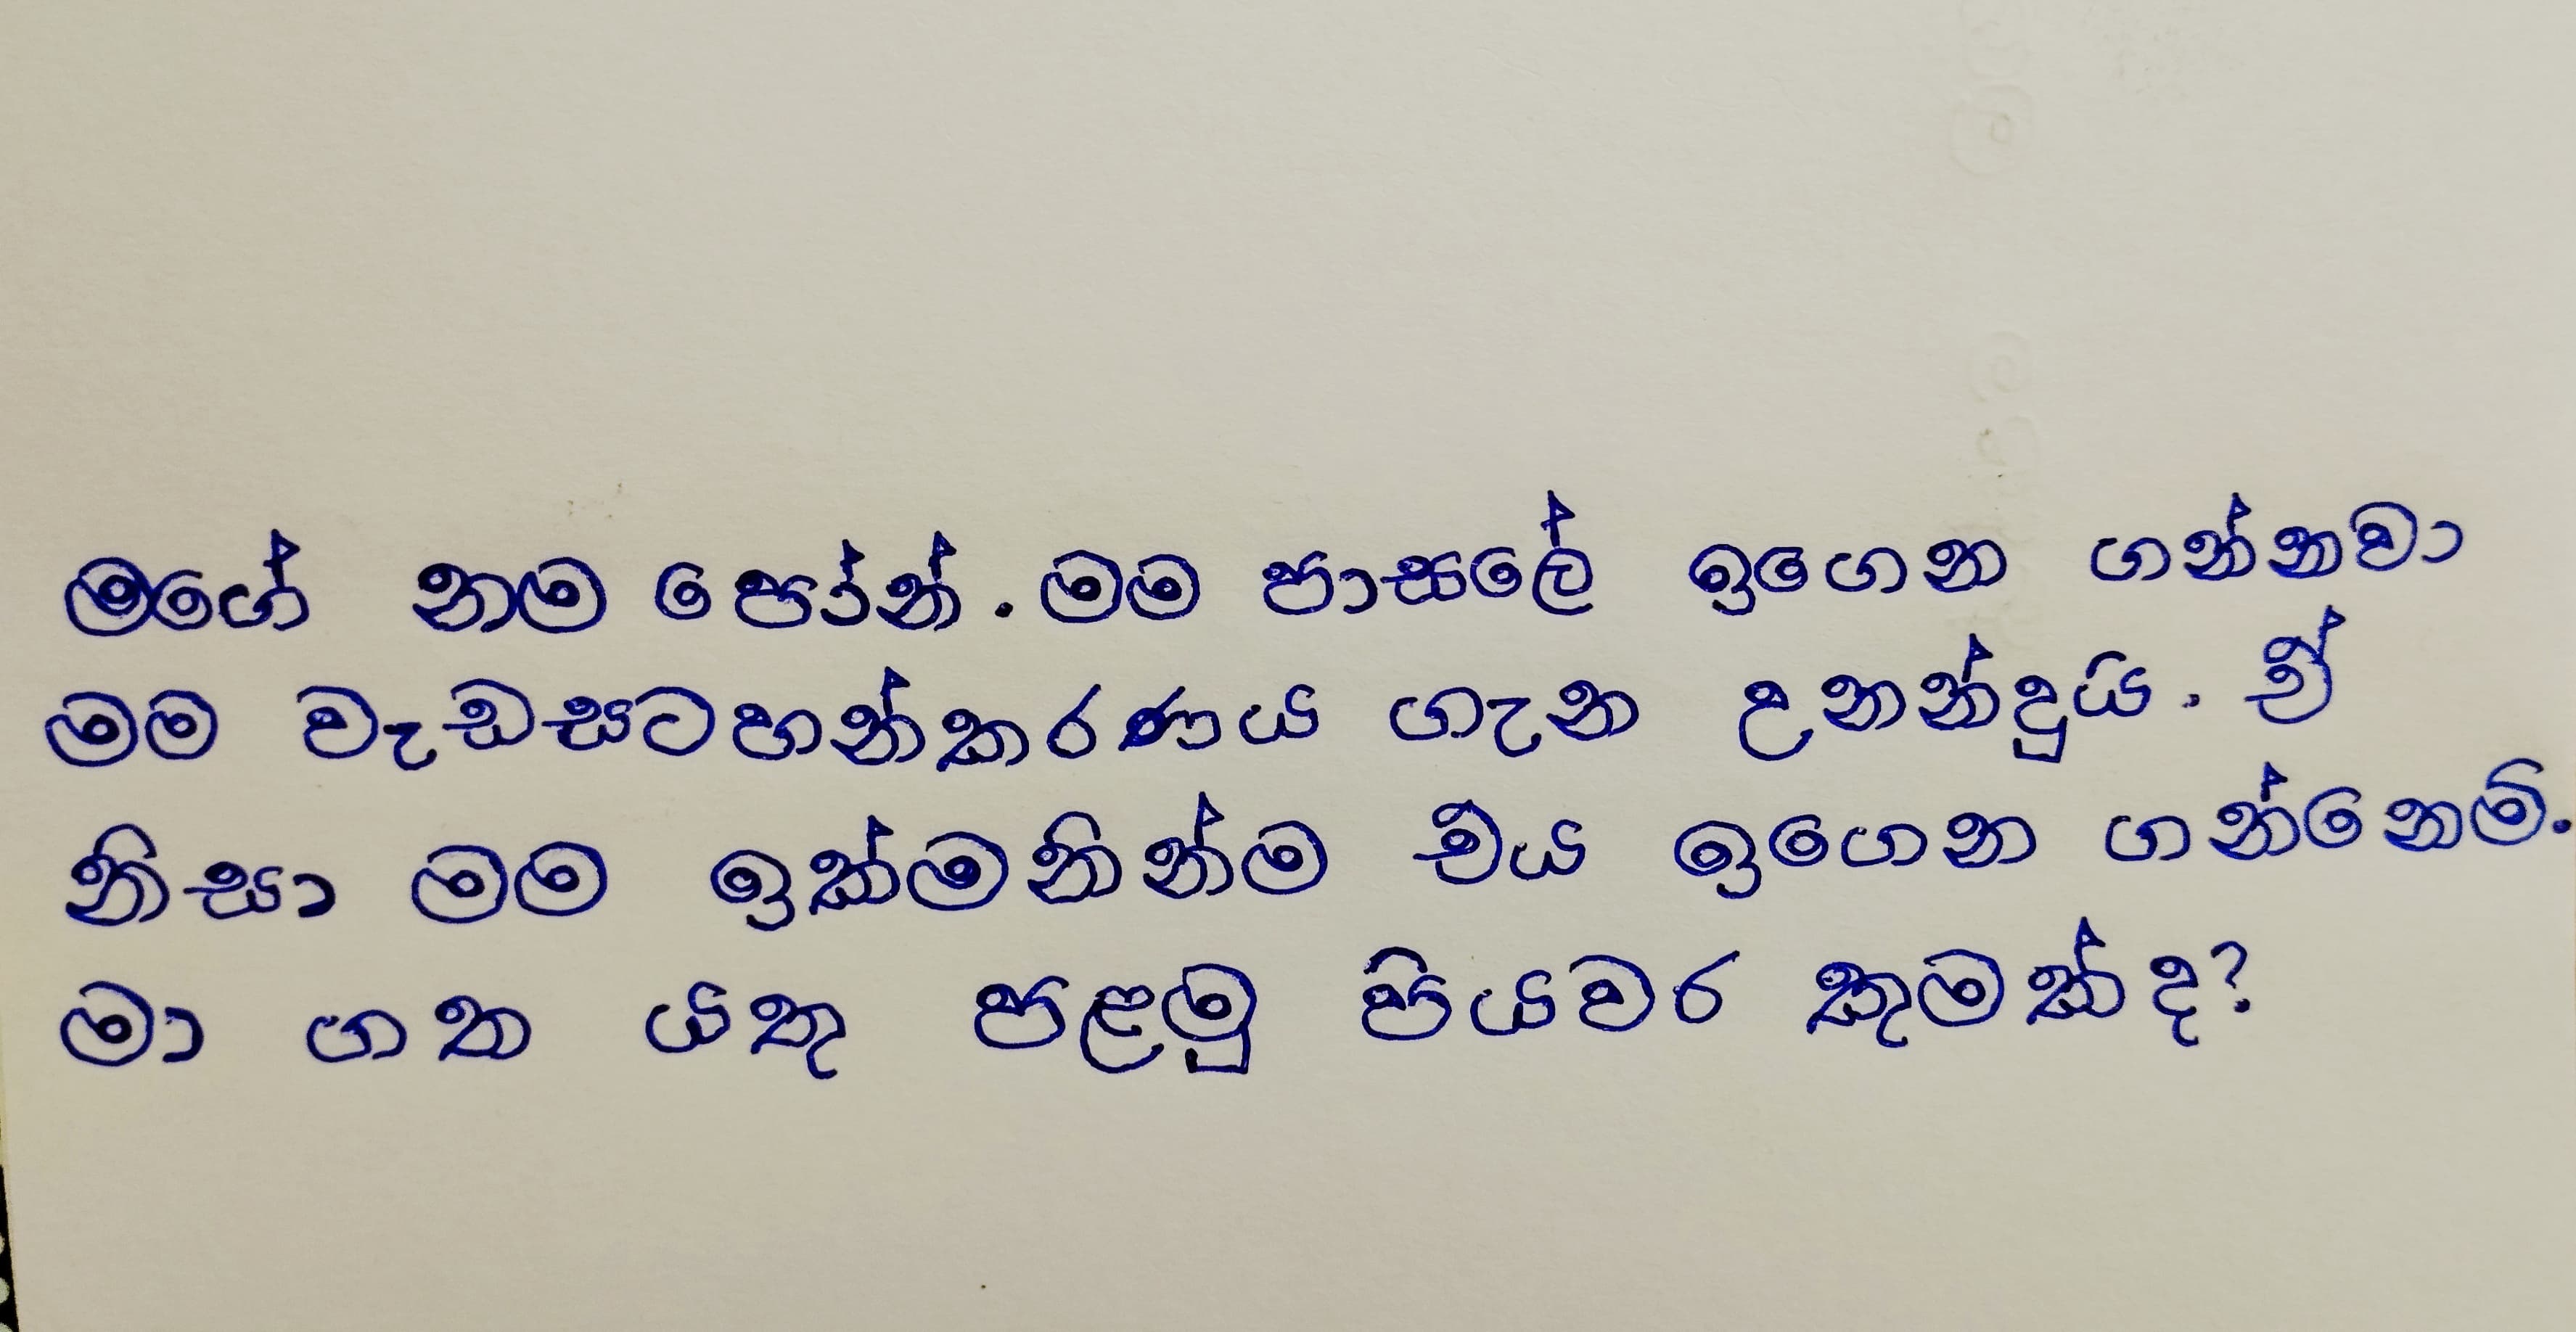 මගේ නම පෝන්. මම පාසලේ ඉගෙන ගන්නවා
මම වැඩසටහන්කරණය ගැන උනන්දුයි. ඒ
නිසා මම ඉක්මනින්ම එය ඉගෙන ගන්නෙමි.
මා ගත යතු පළමු පියවර කුමක්ද?